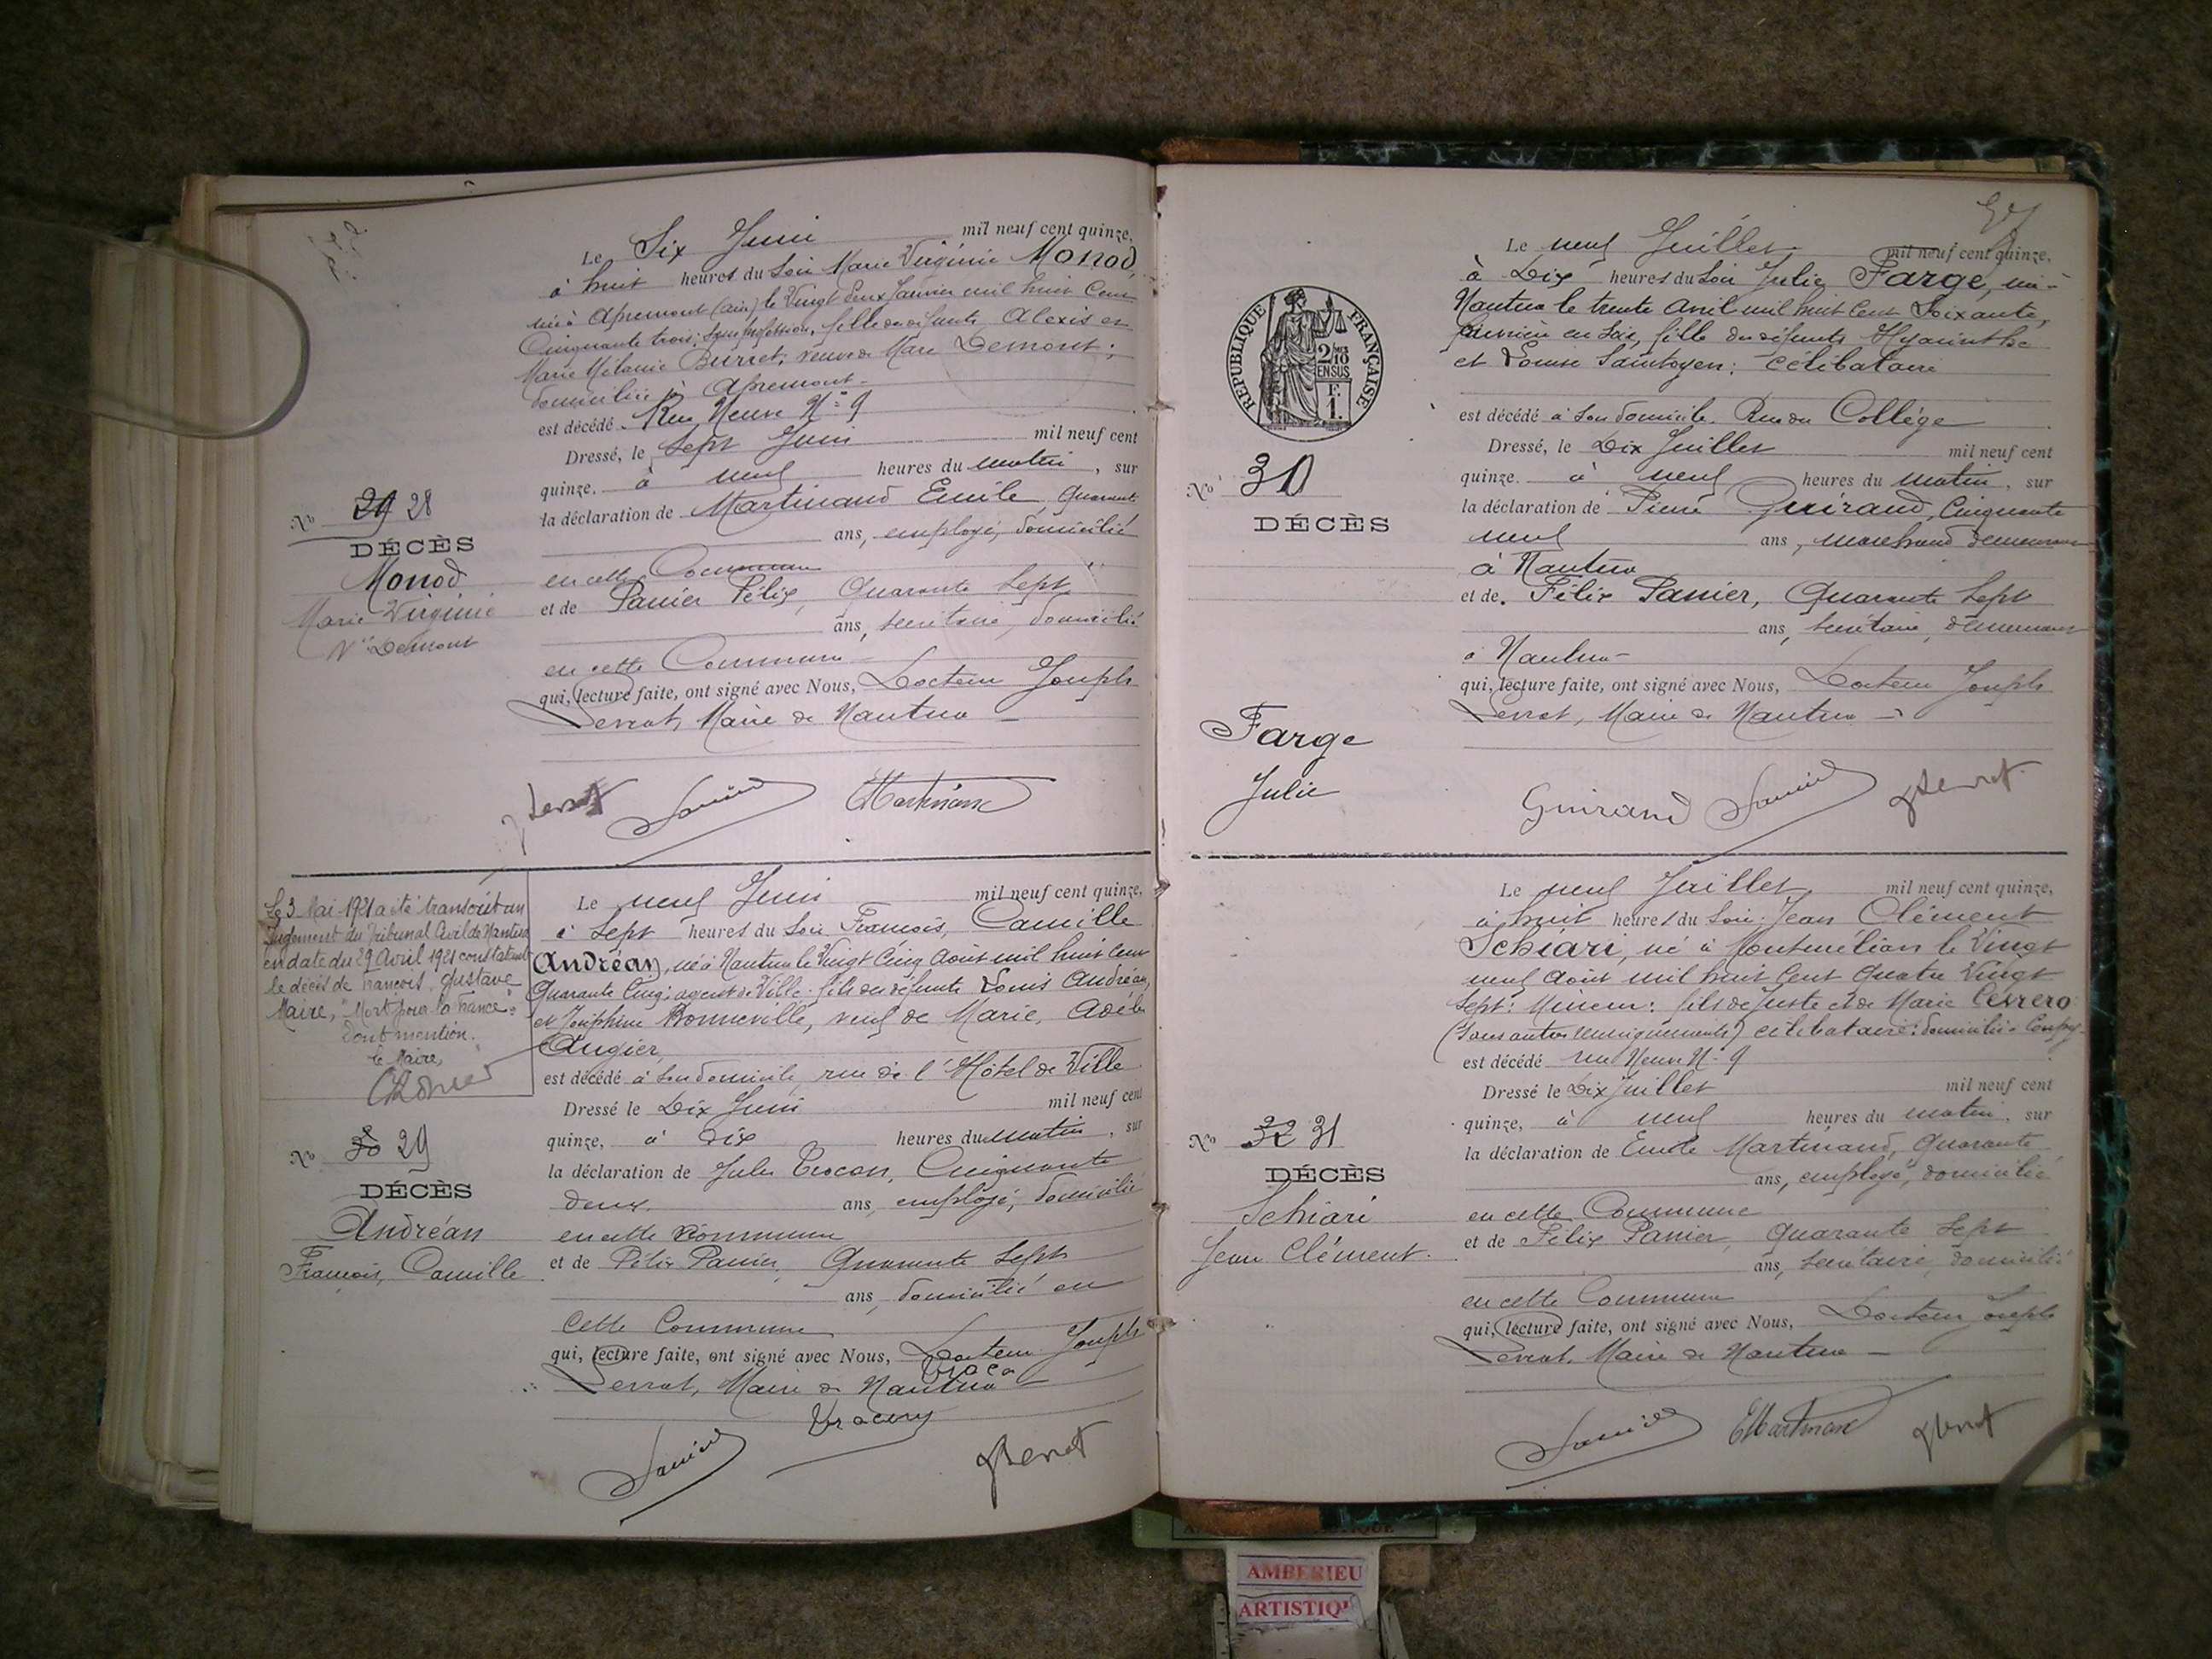 Le Six Juin mil neuf cent quinze,
à huit heures du Soir Marie Virginie Monod,
née à Apremont (ain) le Vingt deux Janvier mil huit Cent
Cinquante trois; Sans profession, fille de défunts Alexis et
Marie Mélanie Burret; veuve de Marc Demont;
domiciliée à Apremont
est décédé Rue Neuve N° 9
Dressé, le Sept Juin mil neuf cent
quinze. à neuf heures du matin, sur
la déclaration de Martinand Emile, quarante
ans, employé, domicilié
en cette Commune
et de Panier Félix, Quarante Sept
ans, secrétaire, domicilié
en cette Commune
qui, lecture faite, ont signé avec Nous, Docteur Joseph
Perrot, Maire de Nantua
No 29 28
DÉCÈS
Monod
Marie Virginie
Vve Demont
Martinand
Le 3 Mai 1921 a été transcrit un
Jugement du Tribunal Civil de Nantua
en date du 29 Avril 1921 constatant
le décès de François Gustave
Maire, "Mort pour la France"
Dont mention.
le Maire,
No 30 29
DÉCÈS
Andréan
François, Camille
Le neuf Juin mil neuf cent quinze,
à Sept heures du Soir François, Camille
Andréan, né à Nantua le Vingt Cinq Août mil huit Cent
Quarante Cinq; agent de Ville fils des défunts Louis Andréan,
et Joséphine Bonneville, veuf de Marie, Adèle
Augier,
est décédé à son domicile, rue de l'Hôtel de Ville
Dressé le Dix Juin mil neuf cent
quinze, à dix heures du matin, sur
la déclaration de Jules Cinquante
deux ans, employé, domicilié
en cette Commune
et de Félix Panier, Quarante Sept
ans, domicilié en
Cette Commune
qui, lecture faite, ont signé avec Nous, Docteur Joseph
Perrot, Maire de Nantua
Perrot
RÉPUBLIQUE FRANÇAISE
2/10 EN SUS
F. 1.
No 30
DÉCÈS
Farge
Julie
Le neuf Juillet mil neuf cent quinze,
à Dix heures du Soir Julie Farge, née à
Nantua le trente Avril mil huit Cent Soixante,
Ouvrière en Soie, fille des défunts Hyacinthe
et Louise Saintoyen; Célibataire
est décédé à Son domicile Rue du Collège
Dressé, le Dix Juillet mil neuf cent
quinze. à neuf heures du matin, sur
la déclaration de Pierre Guirand, Cinquante
neuf ans, marchand demeurant
à Nantua
et de Félix Panier, Quarante Sept
ans, secrétaire, demeurant
à Nantua
qui, lecture faite, ont signé avec Nous, Docteur Joseph
Perrot, Maire de Nantua
Guirand
No 32 31
DÉCÈS
Schiari
Jean Clément
Le neuf Juillet mil neuf cent quinze,
à huit heures du Soir Jean Clément
Schiari, né à Montmélian le Vingt
neuf août mil huit Cent Quatre Vingt
Sept; Mineur; fils de Juste et de Marie Cesrero
(Sans autres renseignements) célibataire; domicilié à
est décédé rue Neuve N° 9
Dressé le Dix Juillet mil neuf cent
quinze, à neuf heures du matin, sur
la déclaration de Emile Martinand, Quarante
ans, employé, domicilié
en cette Commune
et de Félix Panier, quarante Sept
ans, secrétaire, domicilié
en cette Commune
qui, lecture faite, ont signé avec Nous, Docteur Joseph
Perrot, Maire de Nantua
AMBERIEU
ARTISTIQ